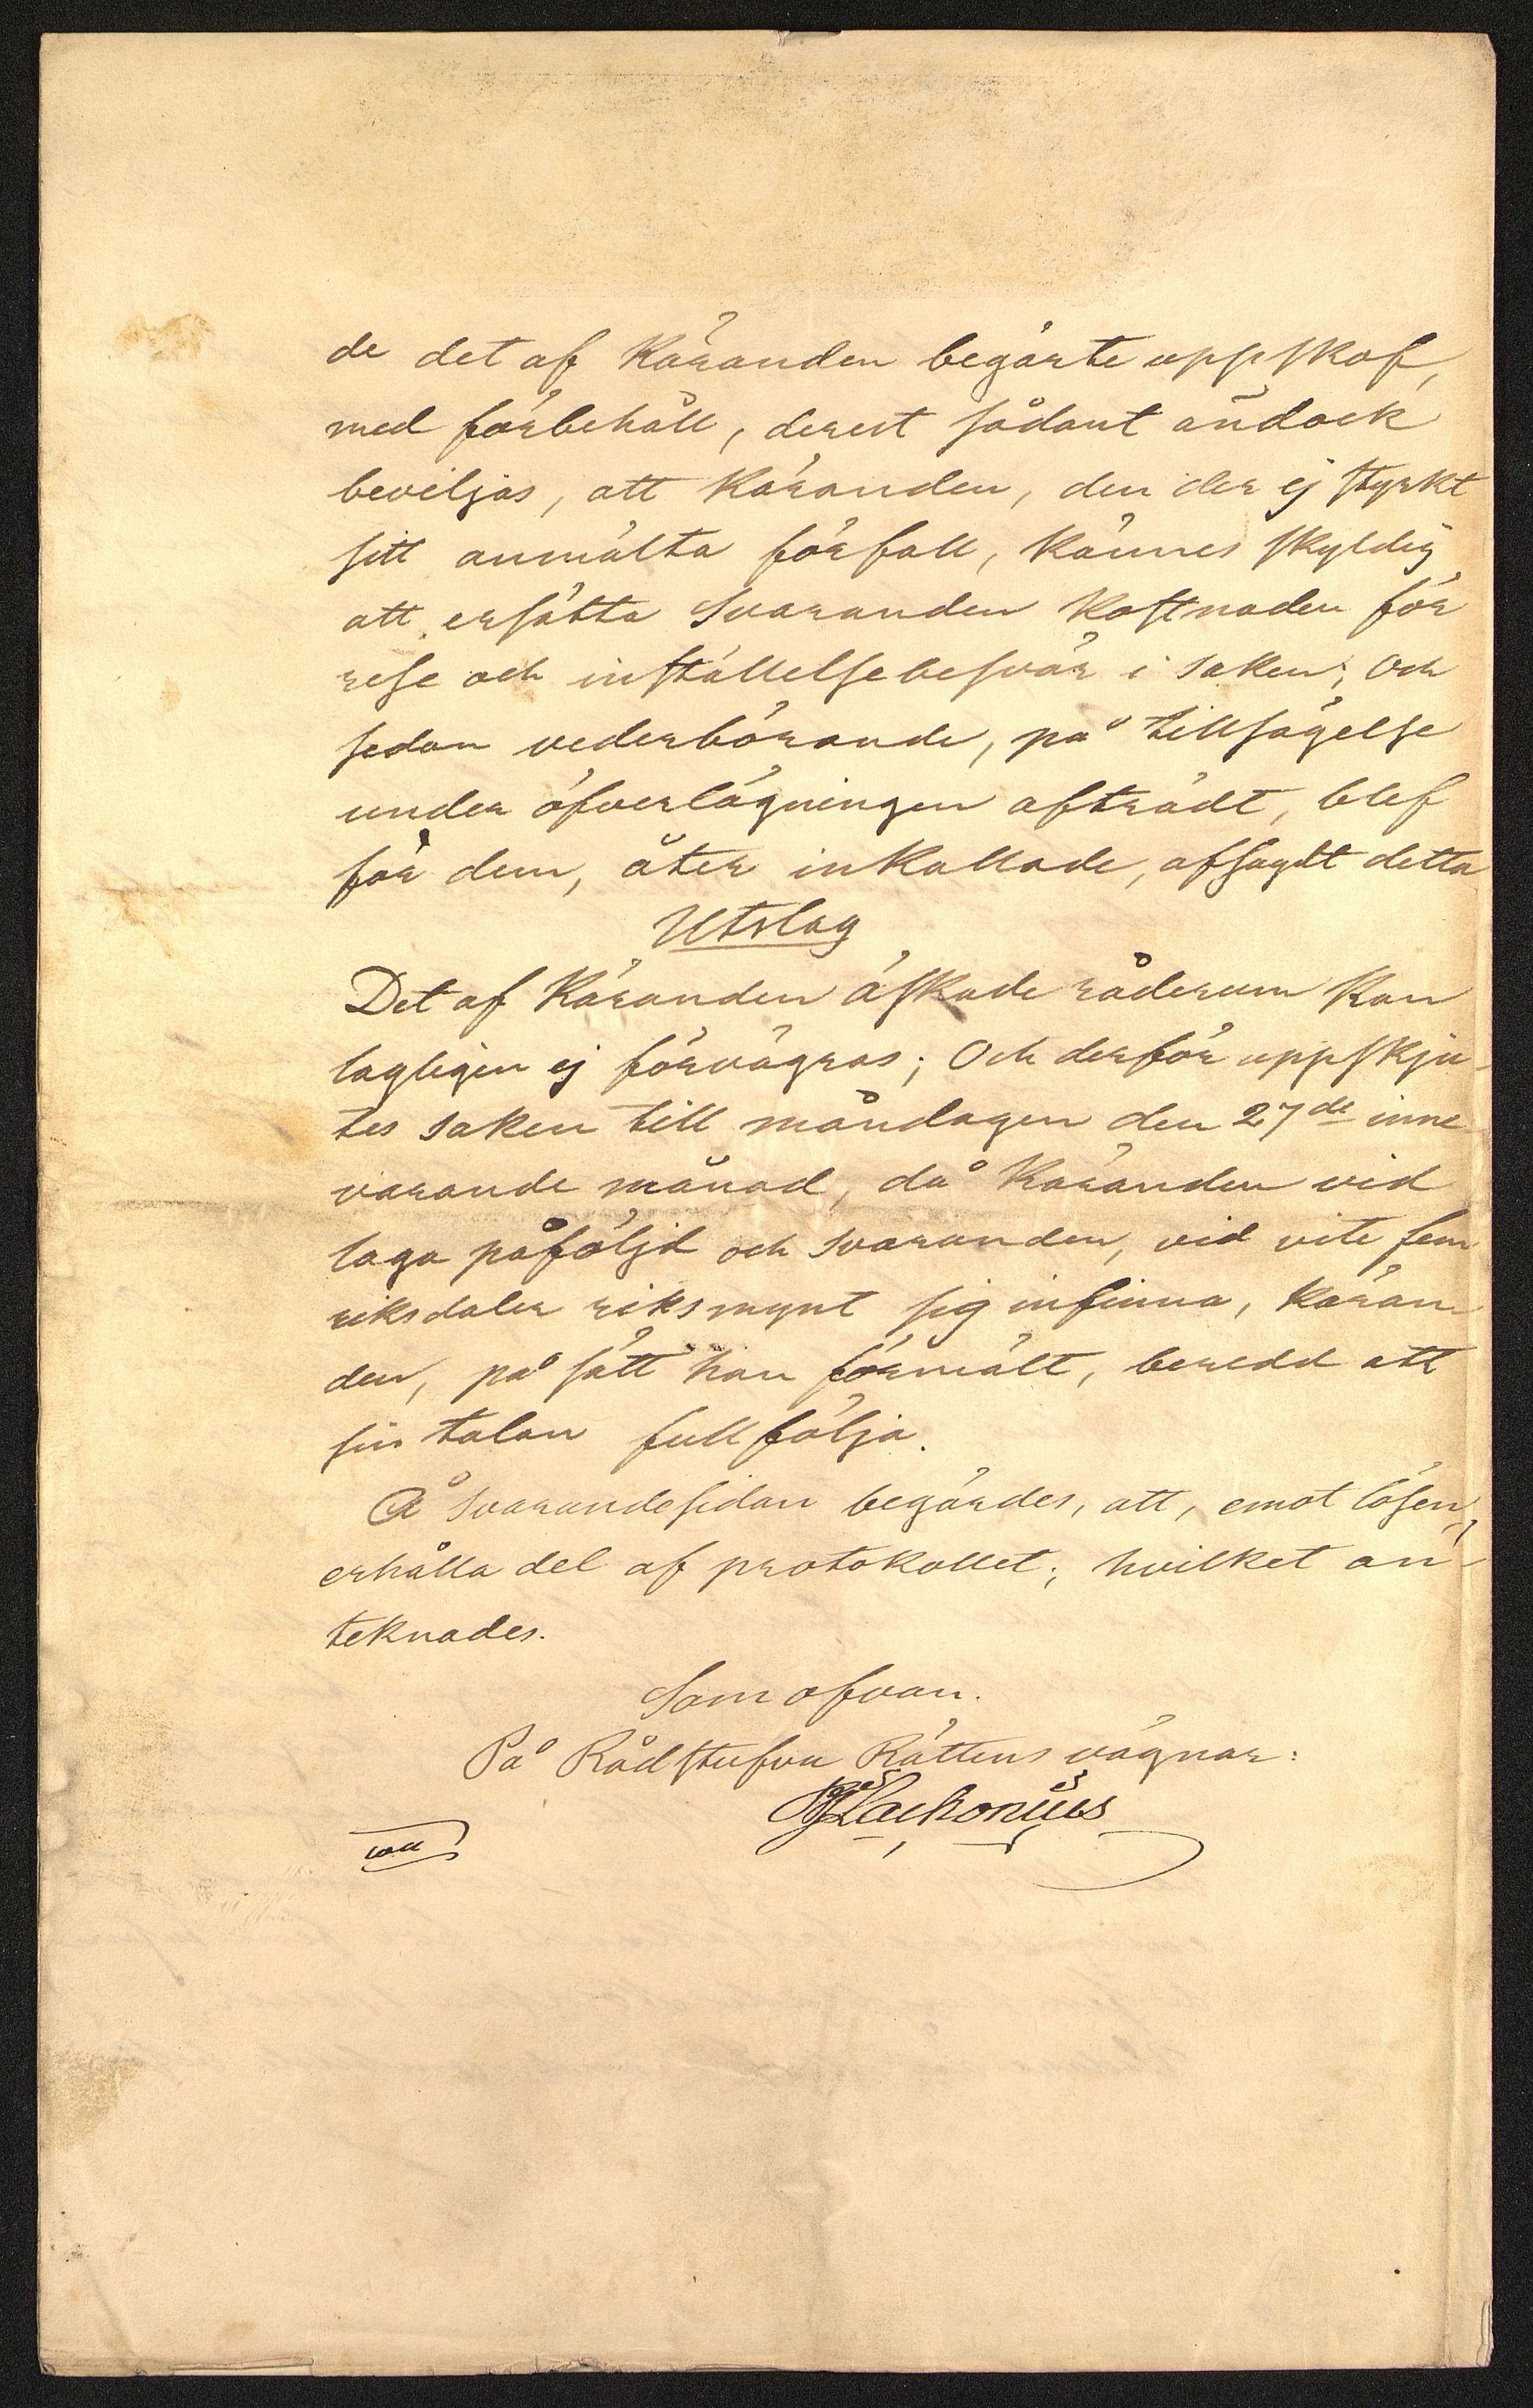 de det af Käranden begärte uppskof,
med förbehåll, derest sådant ändock
beviljas, att Käranden, den der ej styrkt
sitt anmälta förfall, kännes skyldig
att ersätta Svaranden kostnaden för
rese och inställelsebesvär i saken; Och
sedan vederbörande, på tillsägelse
under öfverlägningen afträdt, blef
för dem, åter inkallade, afsagdt detta
Utslag
Det af Käranden äskade råderum kan
lagligen ej förvägras; Och derför uppskju-
tes saken till måndagen den 27de inne-
varande månad, då Käranden vid
laga påföljd och Svaranden, vid vite fem
riksdaler riksmynt sig infinna, Käran-
den, på sätt han förmält, beredd att
sin talan fullfölja.
Å Svarandesidan begärdes, att, emot lösen,
erhålla del af protokollet; hvilket an-
teknades.
Som ofvan.
På Rådstufvu Rättens vägnar: